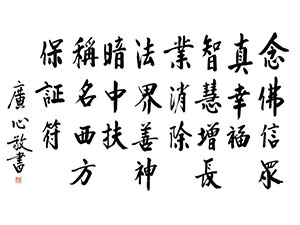 念佛信眾
真幸福
智慧增長
業消除
法界善神
暗中扶
稱名西方
保証符
廣心敬書